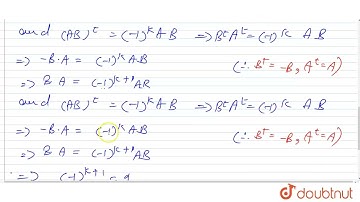 and (AB)ᵗ = (-1)ᵏ AB ⇒ BᵗAᵗ = (-1)ᵏ AB
⇒ -B·A = (-1)ᵏ AB (∵ Bᵗ = -B, Aᵗ = A)
⇒ BA = (-1)ᵏ⁺¹ AB
and (AB)ᵗ = (-1)ᵏ AB ⇒ BᵗAᵗ = (-1)ᵏ AB
⇒ -B·A = (-1)ᵏ AB (∵ Bᵗ = -B, Aᵗ = A)
⇒ BA = (-1)ᵏ⁺¹ AB
⇒ (-1)ᵏ⁺¹ =
doubtnut